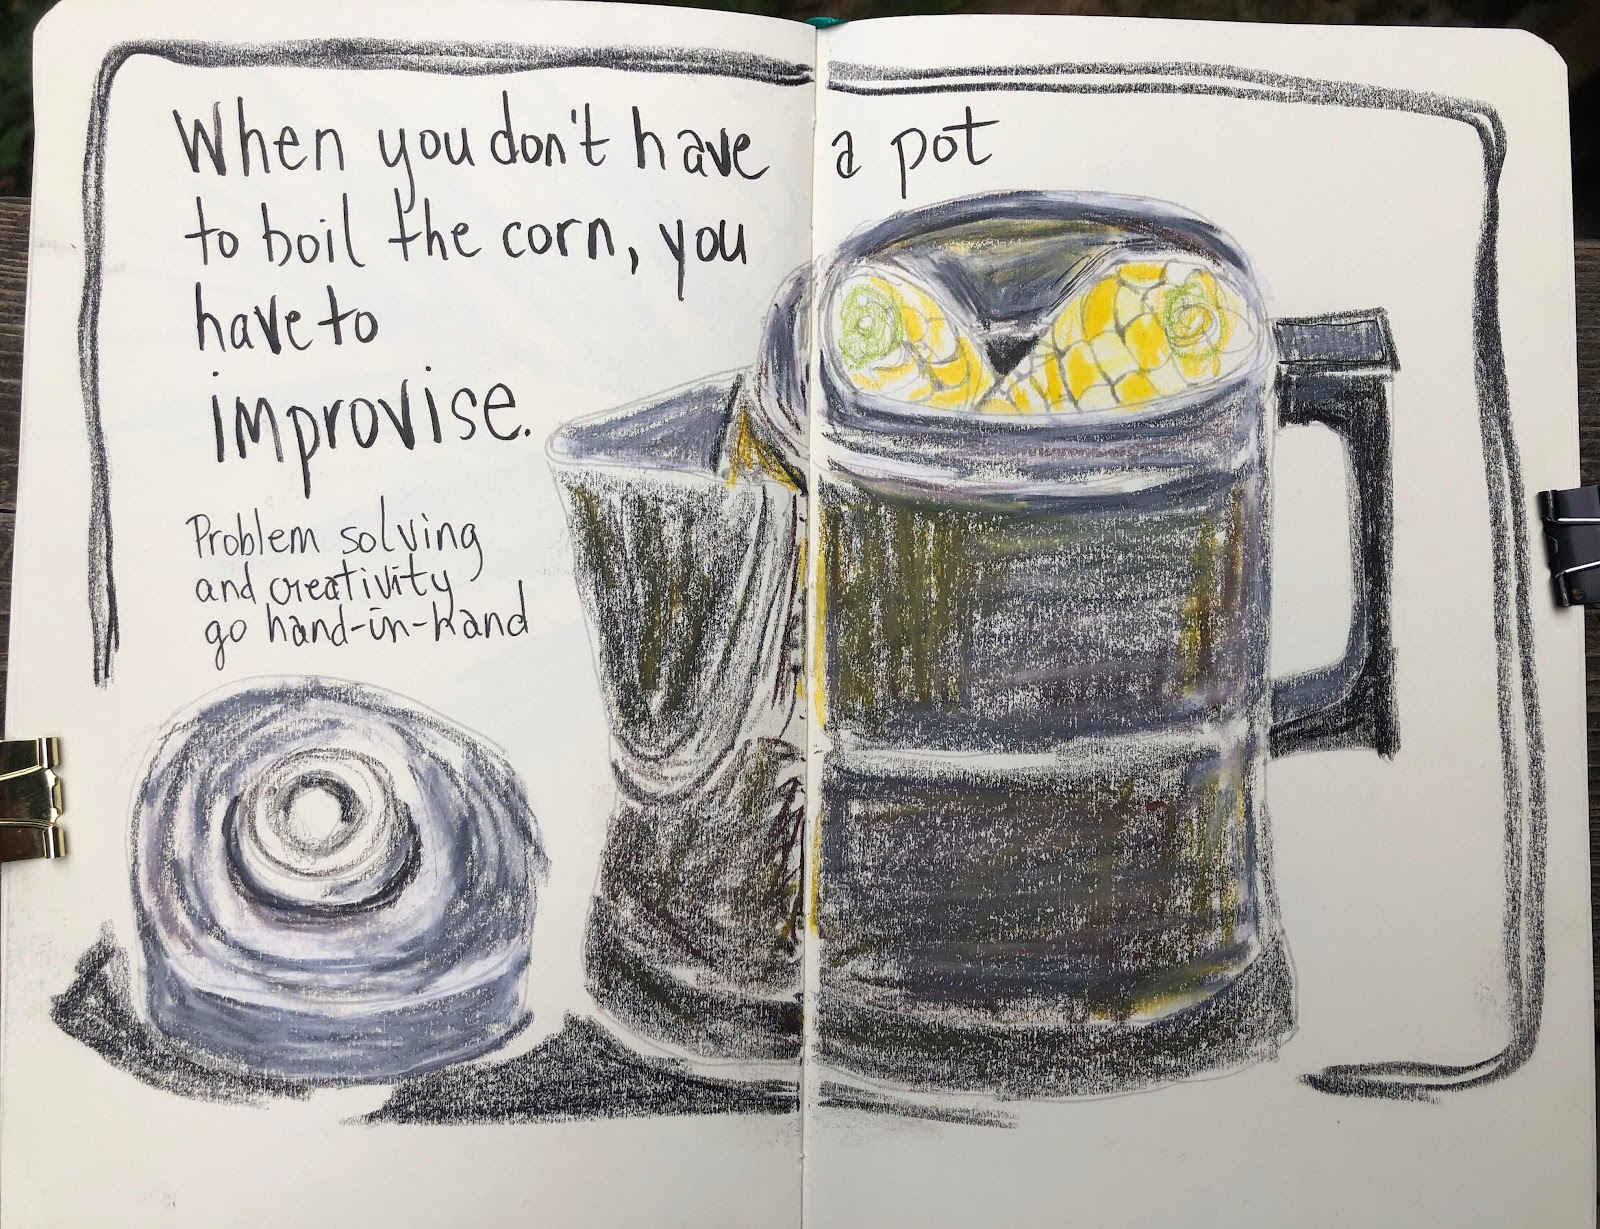 When you don't have a pot
to boil the corn, you
have to
improvise.
Problem solving
and creativity
go hand-in-hand